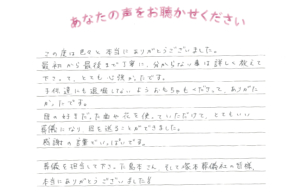 あなたの声をお聴かせください
この度は色々と本当にありがとうございました。
最初から最後まで丁寧に、分からない事は詳しく教えて
下さって、とても心強かったです。
子供達にも退屈しないようおもちゃもくださって、ありがた
かったです。
母の好きだった曲や花を使っていただけて、とてもいい
葬儀になり母を送ることができました。
感謝の言葉でいっぱいです。
葬儀を担当して下さった島本さん そして塚本葬儀社の皆様、
本当にありがとうございました!!